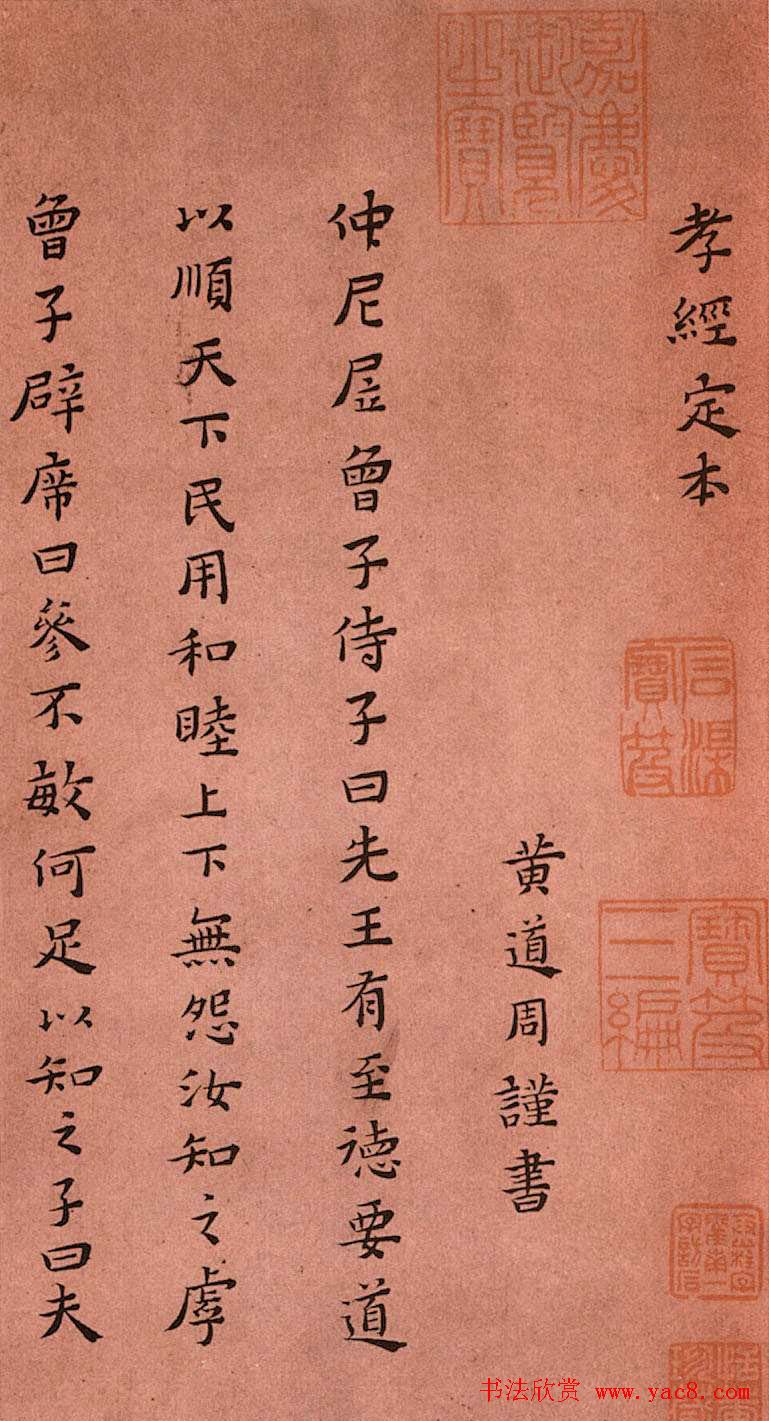 孝經定本
黄道周謹書
仲尼凥曾子侍子曰先王有至徳要道
以順天下民用和睦上下無怨汝知之虖
曾子辟席曰參不敏何足以知之子曰夫
嘉慶御覽之寶
寶笈三編
書法欣赏 www.yac8.com